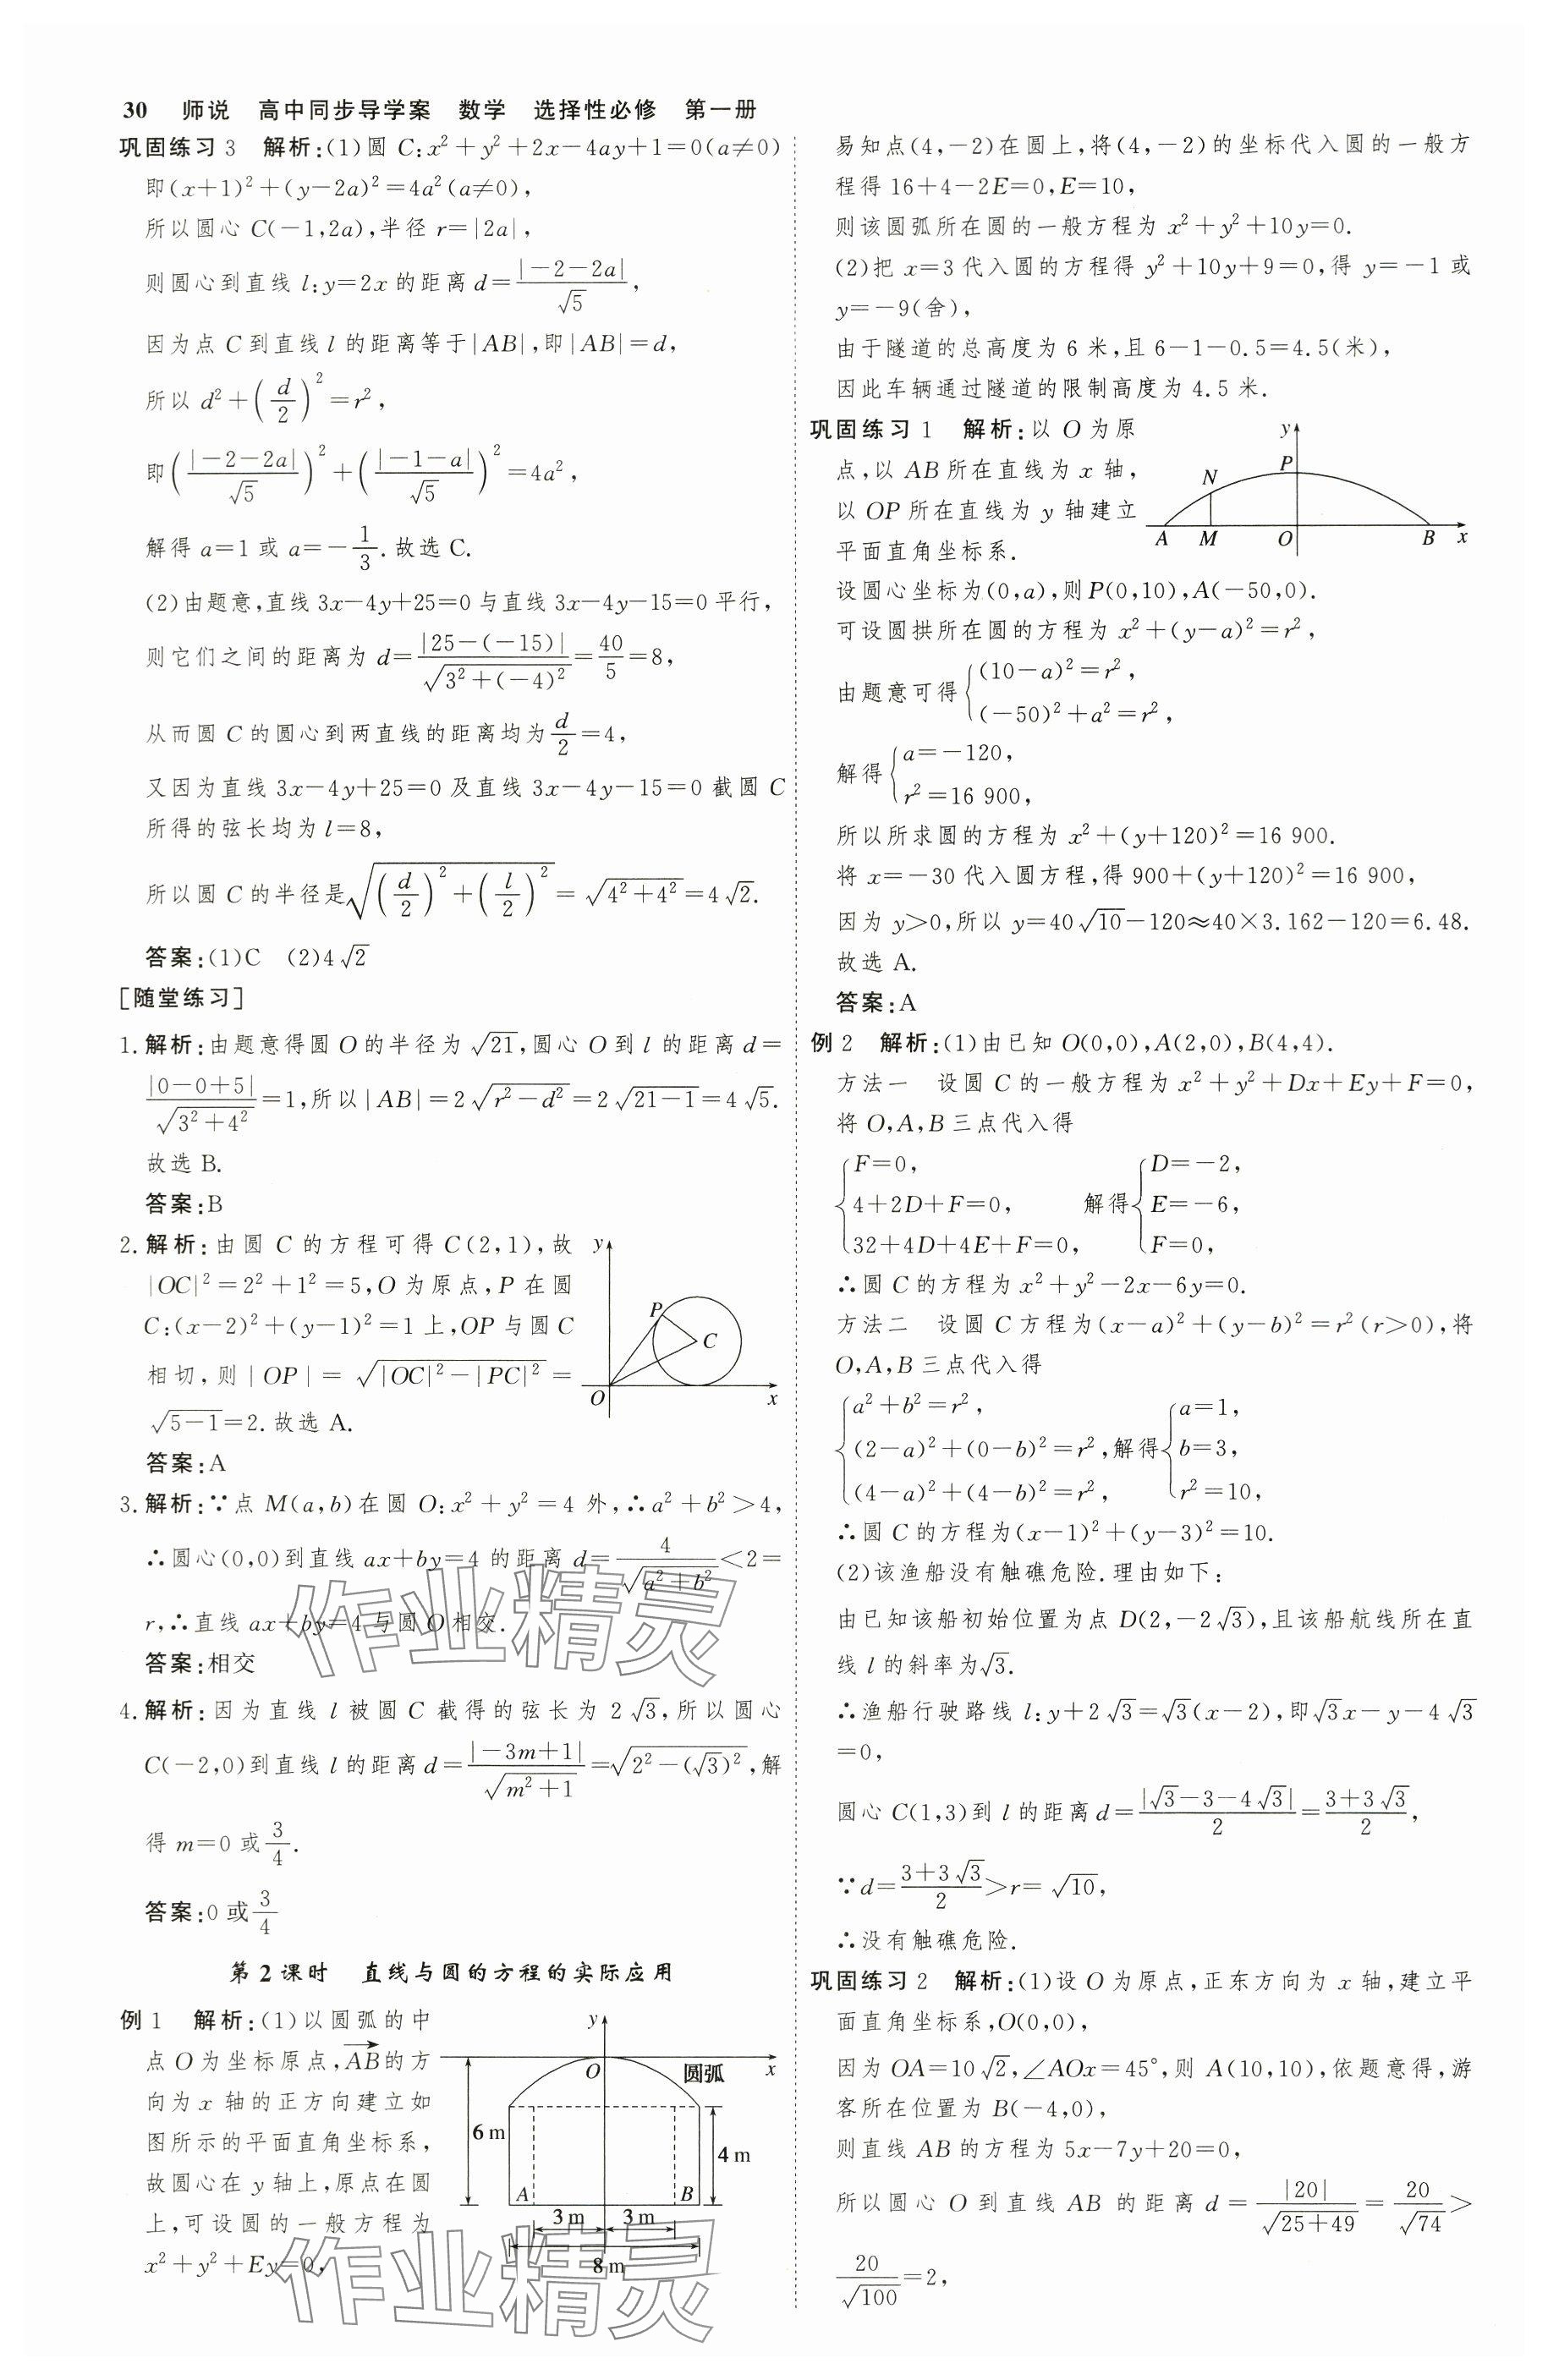 30 师说 高中同步导学案 数学 选择性必修 第一册
巩固练习 3 解析:(1)圆 C:x²+y²+2x-4ay+1=0(a≠0)
即(x+1)²+(y-2a)²=4a²(a≠0),
所以圆心 C(-1,2a),半径 r=|2a|,
则圆心到直线 l:y=2x 的距离 d=|-2-2a|/√5,
因为点 C 到直线 l 的距离等于|AB|,即|AB|=d,
所以 d²+(d/2)²=r²,
即(|-2-2a|/√5)²+(|-1-a|/√5)²=4a²,
解得 a=1 或 a=-1/3.故选 C.
(2)由题意,直线 3x-4y+25=0 与直线 3x-4y-15=0 平行,
则它们之间的距离为 d=|25-(-15)|/√(3²+(-4)²)=40/5=8,
从而圆 C 的圆心到两直线的距离均为d/2=4,
又因为直线 3x-4y+25=0 及直线 3x-4y-15=0 截圆 C
所得的弦长均为 l=8,
所以圆 C 的半径是√((d/2)²+(l/2)²)=√(4²+4²)=4√2.
答案:(1)C (2)4√2
[随堂练习]
1.解析:由题意得圆 O 的半径为 √21,圆心 O 到 l 的距离 d=
|0-0+5|/√(3²+4²)=1,所以|AB|=2√(r²-d²)=2√(21-1)=4√5.
故选 B.
答案:B
2.解析:由圆 C 的方程可得 C(2,1),故
|OC|²=2²+1²=5,O 为原点,P 在圆
C:(x-2)²+(y-1)²=1 上,OP 与圆 C
相切,则|OP|=√(|OC|²-|PC|²)=
√(5-1)=2.故选 A.
y
P
C
O
x
答案:A
3.解析:∵点 M(a,b)在圆 O:x²+y²=4 外,∴a²+b²>4,
∴圆心(0,0)到直线 ax+by=4 的距离 d=4/√(a²+b²)<2=
r,∴直线 ax+by=4 与圆 O 相交.
答案:相交
4.解析:因为直线 l 被圆 C 截得的弦长为 2√3,所以圆心
C(-2,0)到直线 l 的距离 d=|-3m+1|/√(m²+1)=√(2²-(√3)²),解
得 m=0 或3/4.
答案:0 或3/4
第 2 课时 直线与圆的方程的实际应用
例 1 解析:(1)以圆弧的中
点 O 为坐标原点,AB→的方
向为 x 轴的正方向建立如
图所示的平面直角坐标系,
故圆心在 y 轴上,原点在圆
上,可设圆的一般方程为
x²+y²+Ey=0,
y
O
圆弧
x
6 m
4 m
A
B
3 m
3 m
8 m
易知点(4,-2)在圆上,将(4,-2)的坐标代入圆的一般方
程得 16+4-2E=0,E=10,
则该圆弧所在圆的一般方程为 x²+y²+10y=0.
(2)把 x=3 代入圆的方程得 y²+10y+9=0,得 y=-1 或
y=-9(舍),
由于隧道的总高度为 6 米,且 6-1-0.5=4.5(米),
因此车辆通过隧道的限制高度为 4.5 米.
巩固练习 1 解析:以 O 为原
点,以 AB 所在直线为 x 轴,
以 OP 所在直线为 y 轴建立
平面直角坐标系.
y
P
N
A
M
O
B
x
设圆心坐标为(0,a),则 P(0,10),A(-50,0).
可设圆拱所在圆的方程为 x²+(y-a)²=r²,
由题意可得{(10-a)²=r²,
(-50)²+a²=r²,
解得{a=-120,
r²=16 900,
所以所求圆的方程为 x²+(y+120)²=16 900.
将 x=-30 代入圆方程,得 900+(y+120)²=16 900,
因为 y>0,所以 y=40√10-120≈40×3.162-120=6.48.
故选 A.
答案:A
例 2 解析:(1)由已知 O(0,0),A(2,0),B(4,4).
方法一 设圆 C 的一般方程为 x²+y²+Dx+Ey+F=0,
将 O,A,B 三点代入得
{F=0, {D=-2,
4+2D+F=0, 解得 E=-6,
32+4D+4E+F=0, F=0,
∴圆 C 的方程为 x²+y²-2x-6y=0.
方法二 设圆 C 方程为(x-a)²+(y-b)²=r²(r>0),将
O,A,B 三点代入得
{a²+b²=r², {a=1,
(2-a)²+(0-b)²=r²,解得 b=3,
(4-a)²+(4-b)²=r², r²=10,
∴圆 C 的方程为(x-1)²+(y-3)²=10.
(2)该渔船没有触礁危险.理由如下:
由已知该船初始位置为点 D(2,-2√3),且该船航线所在直
线 l 的斜率为√3.
∴渔船行驶路线 l:y+2√3=√3(x-2),即√3x-y-4√3
=0,
圆心 C(1,3)到 l 的距离 d=|√3-3-4√3|/2=(3+3√3)/2,
∵d=(3+3√3)/2>r=√10,
∴没有触礁危险.
巩固练习 2 解析:(1)设 O 为原点,正东方向为 x 轴,建立平
面直角坐标系,O(0,0),
因为 OA=10√2,∠AOx=45°,则 A(10,10),依题意得,游
客所在位置为 B(-4,0),
则直线 AB 的方程为 5x-7y+20=0,
所以圆心 O 到直线 AB 的距离 d=|20|/√(25+49)=20/√74>
20/√100=2,
作业精灵
作业精灵